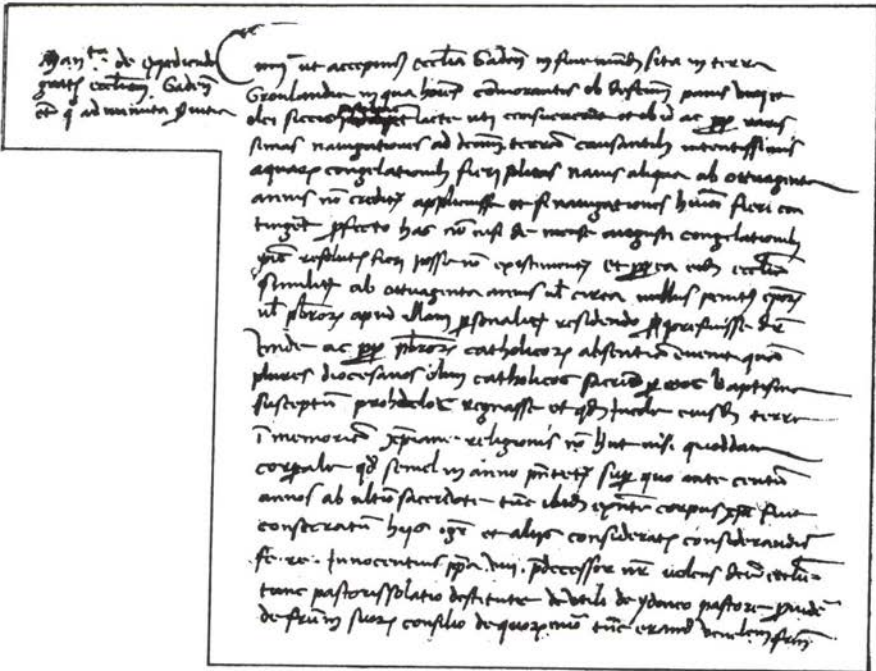 Man.ta de Expediendo
gratis ecclesiam Gadeñ
etc̄ q̄ ad minuta
Cum ut accepimus ecclesia Gadeñ in fine mundi sita in terra
Gronlandie in qua hoīes comorantes ob defectum panis vini et
olei siccis piscibus et lacte uti consueverūt et ob id ac pp raris
simas navigationes ad dictam terrā causantib intentissimis
aquarū congelationib fieri solitas navis aliqua ab octuaginta
annis nō creditur applicuisse et si navigationes huiusmoī fieri con
tingeret profecto has nō nisi de mense augusti congelationib
ip̄is resolutis fieri posse nō existimentur et propterea eidem ecclesie
similiter ab octuaginta annis vl circa nullus penitus epōrū
vl pbrorū apud illam personaliter residendo prefuisse dr̄
Unde ac pp pbrorū catholicorū absentiā evenit quam
plures diocesanos olim catholicos sacrum per eos baptisma
susceptum prohdolor renegasse et quod Incole eiusdem terre
ī memoriam xp̄iane religionis nō hn̄t nisi quoddam
corporale qd̄ semel in anno presentetur super quo ante centum
annos ab ultimo sacerdote tūc ibidem exn̄te corpus xp̄i fuit
consecratum hijs igr̄ et alijs consideratis considerandis
fe. re. Innocentius ppa viij. predecessor nr̄ volens dicte ecclesie
tunc pastoris solatio destitute de utili de ydoneo pastore providere
de frūm suorū consilio de quorū numero tūc eramus venerabilem frēm